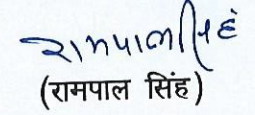 रामपाल सिंह
(रामपाल सिंह)